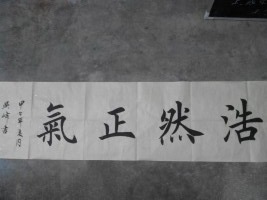 浩然正氣
甲午年夏月